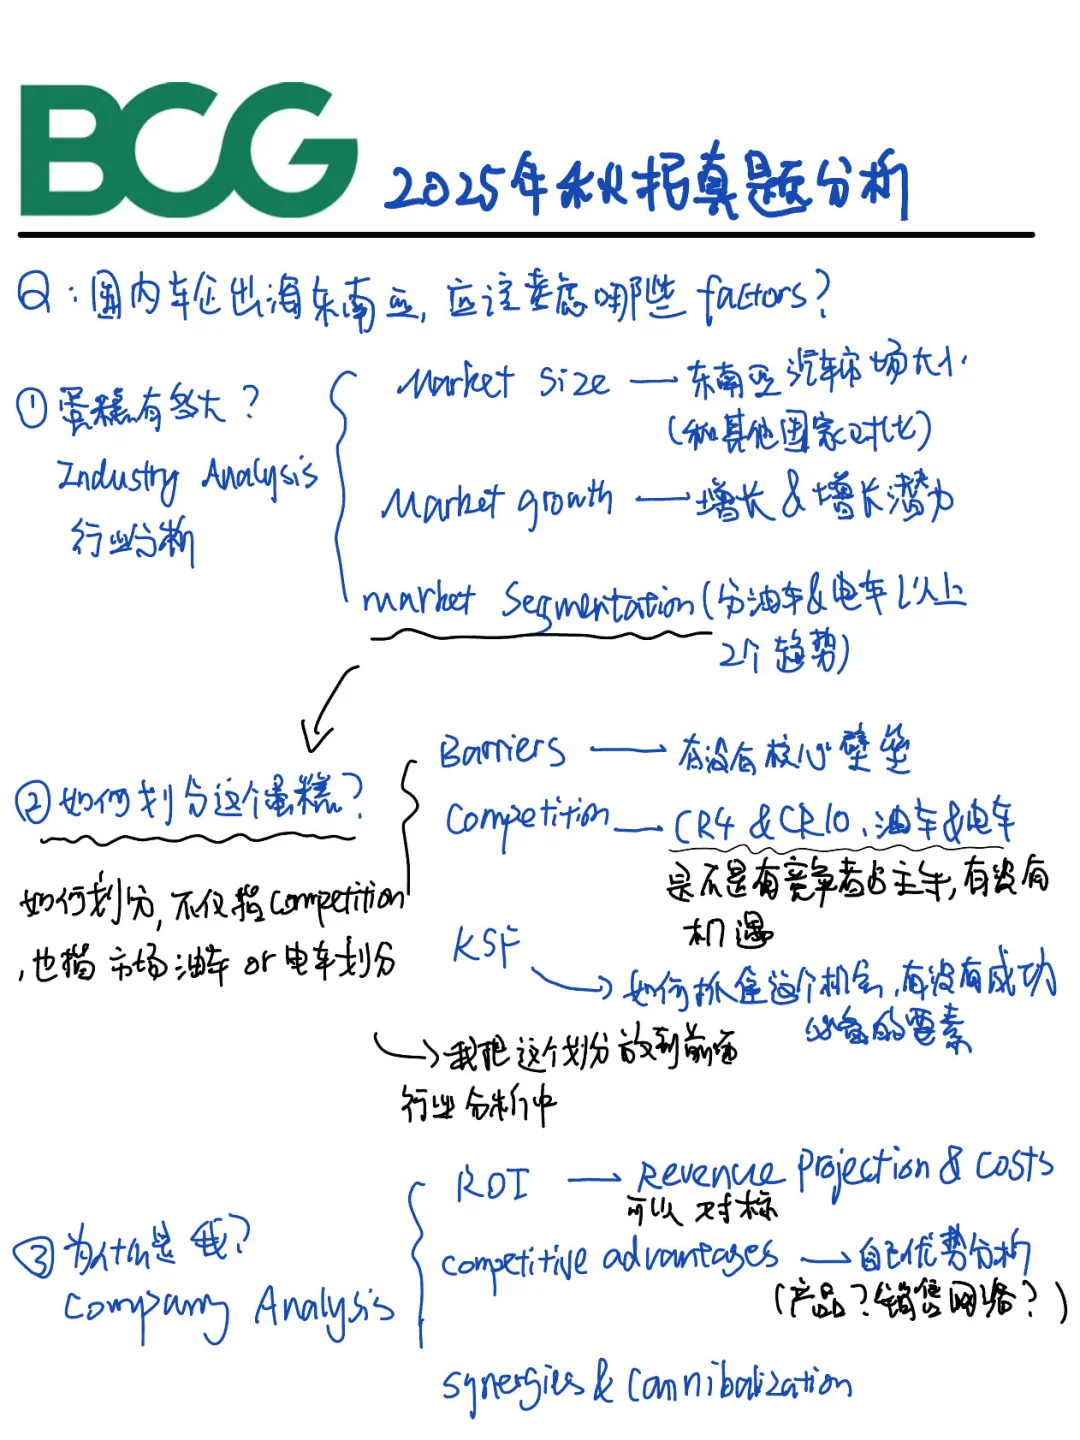 BCG
2025年秋招真题分析
Q:国内车企出海东南亚,应该考虑哪些factors?
①蛋糕有多大?
Industry Analysis
行业分析
Market size → 东南亚汽车市场大小
(和其他国家对比)
Market growth → 增长&增长潜力
market Segmentation(分油车&电车以上
2个趋势)
②如何划分这个蛋糕?
如何划分,不仅指competition
,也指市场油车or电车划分
Barriers → 有没有核心壁垒
Competition → CR4&CR10、油车&电车
是不是有竞争者占主导,有没有
机遇
KSF
→ 如何抓住这个机会,有没有成功
必备的要素
→ 我把这个划分放到前面
行业分析中
③为什么是我?
Company Analysis
ROI → Revenue Projection & Costs
可以对标
Competitive advantages → 自己优势分析
(产品?销售网络?)
Synergies & Cannibalization